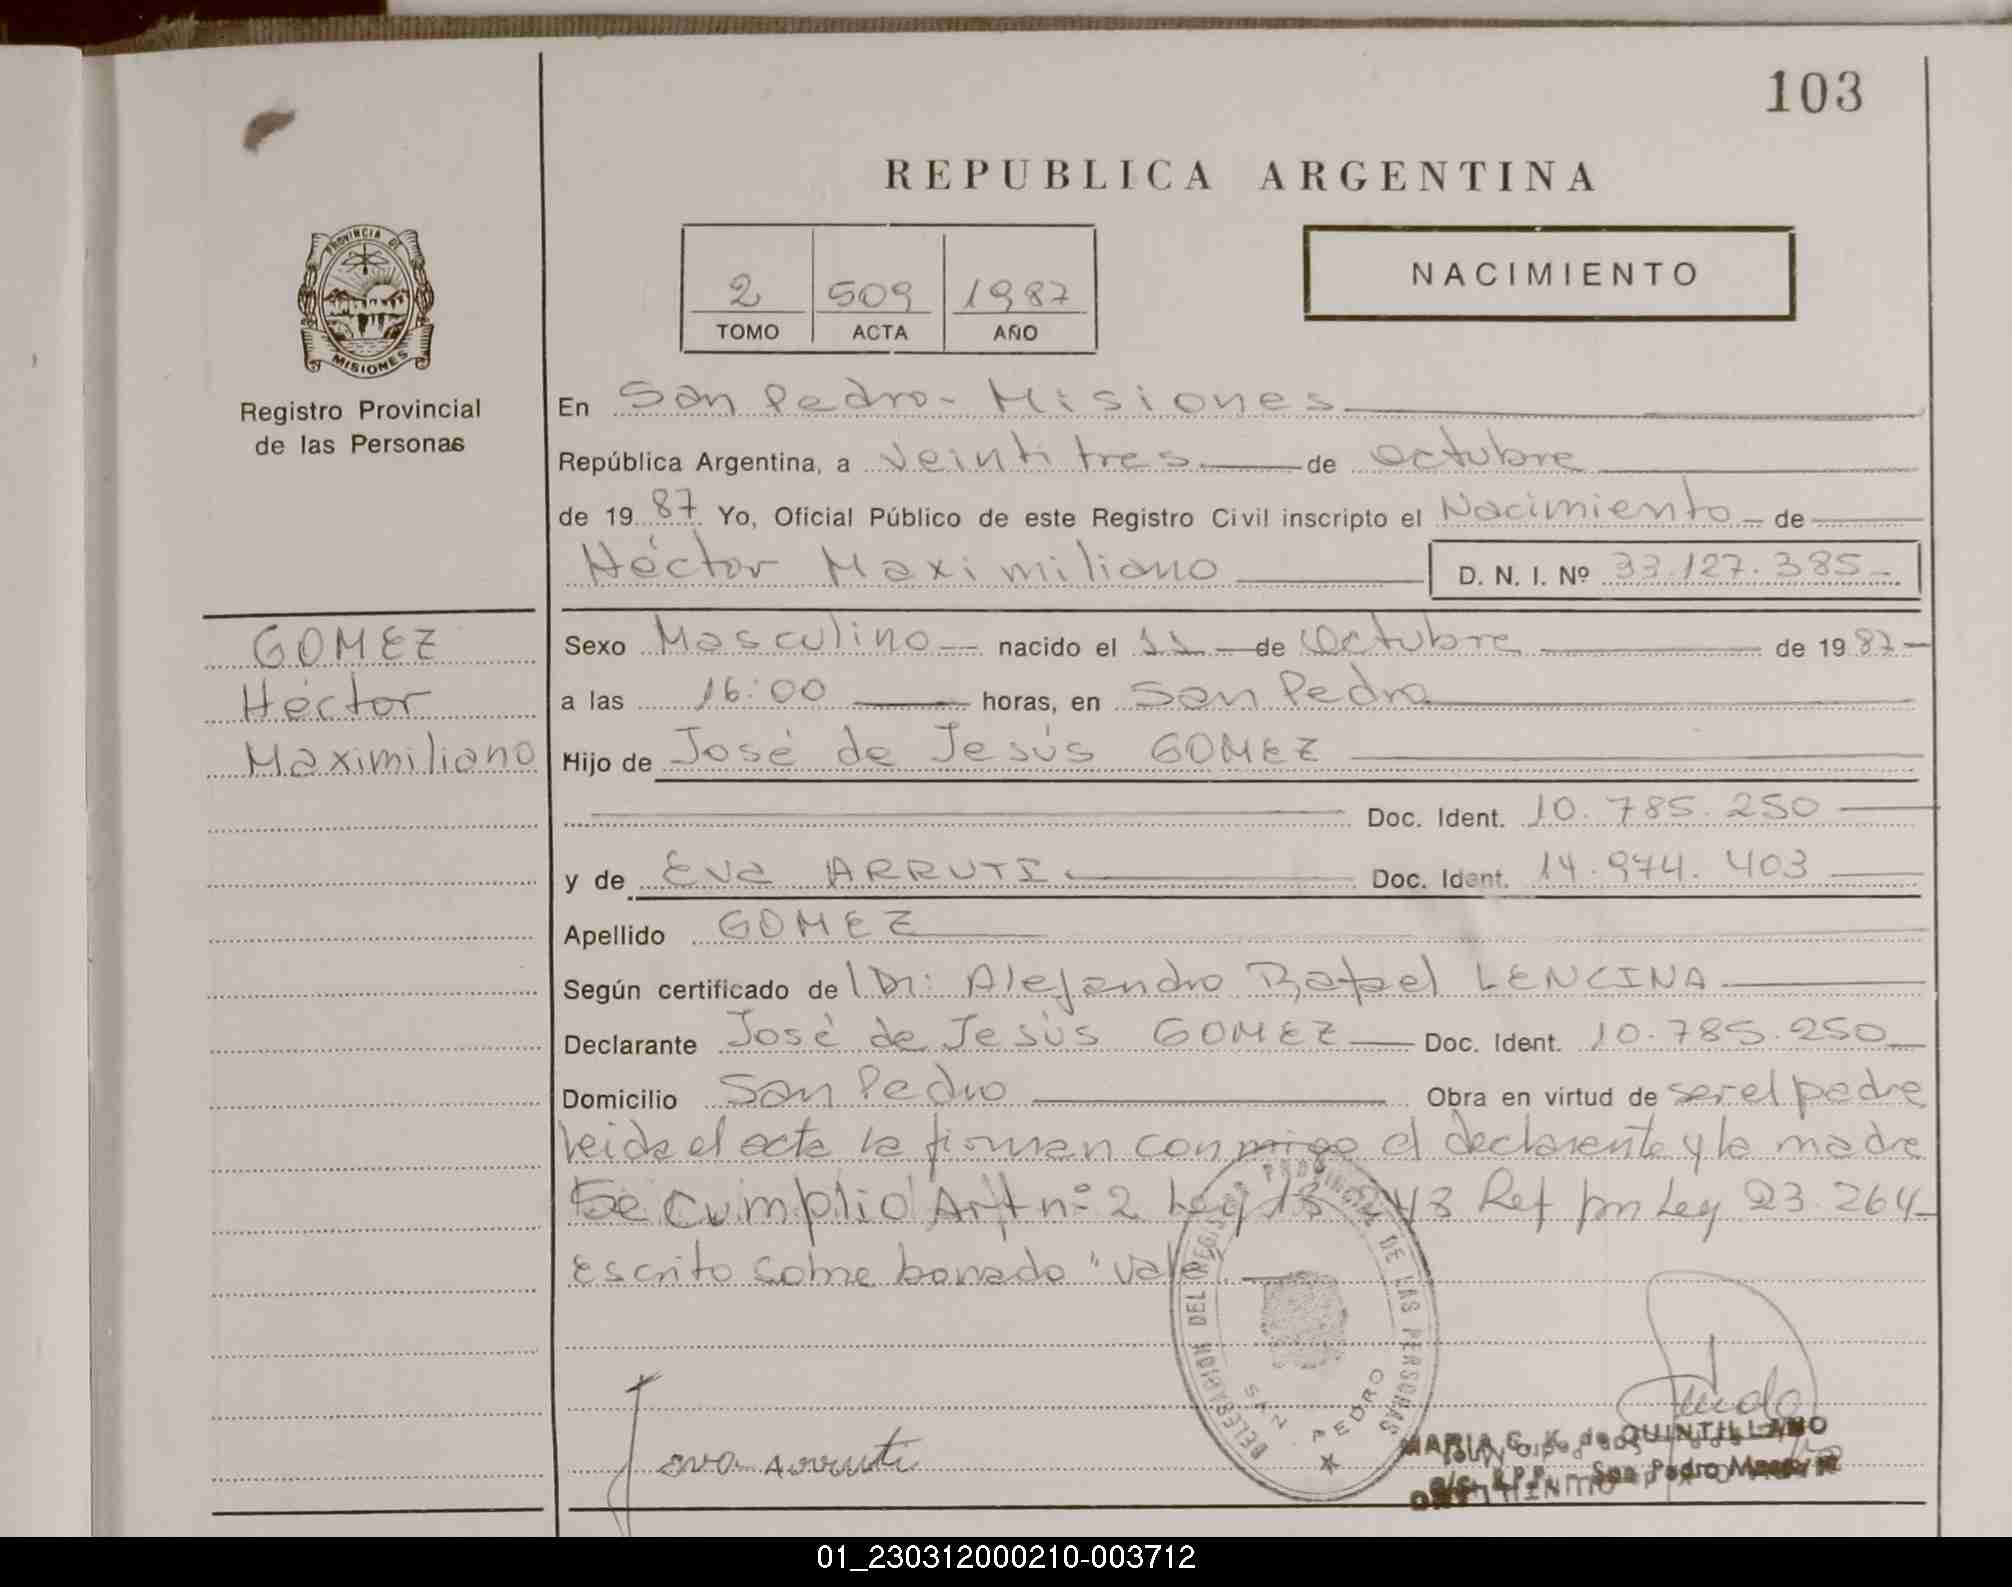 103
REPUBLICA ARGENTINA
PROVINCIA DE
MISIONES
Registro Provincial
de las Personas
2 509 1987
TOMO ACTA AÑO
NACIMIENTO
En San Pedro - Misiones
República Argentina, a veintitres de octubre
de 19 87 Yo, Oficial Público de este Registro Civil inscripto el Nacimiento de
Héctor Maximiliano D. N. I. Nº 33.127.385
GOMEZ
Héctor
Maximiliano
Sexo Masculino nacido el 11 de Octubre de 19 87
a las 16:00 horas, en San Pedro
Hijo de José de Jesús GOMEZ
Doc. Ident. 10.785.250
y de Eva ARRUTI Doc. Ident. 14.974.403
Apellido GOMEZ
Según certificado de Dr: Alejandro Rafael LENCINA
Declarante José de Jesús GOMEZ Doc. Ident. 10.785.250
Domicilio San Pedro Obra en virtud de ser el padre
leida el acta la firman conmigo el declarante y la madre
Se Cumplió Art nº 2 Ley 13 Ref por Ley 23.264
escrito sobre borrado "vale
DELEGACION DEL REGISTRO PROVINCIAL DE LAS PERSONAS
SAN PEDRO
eva arruti
MARIA C. K. de QUINTILLANO
San Pedro
01_230312000210-003712